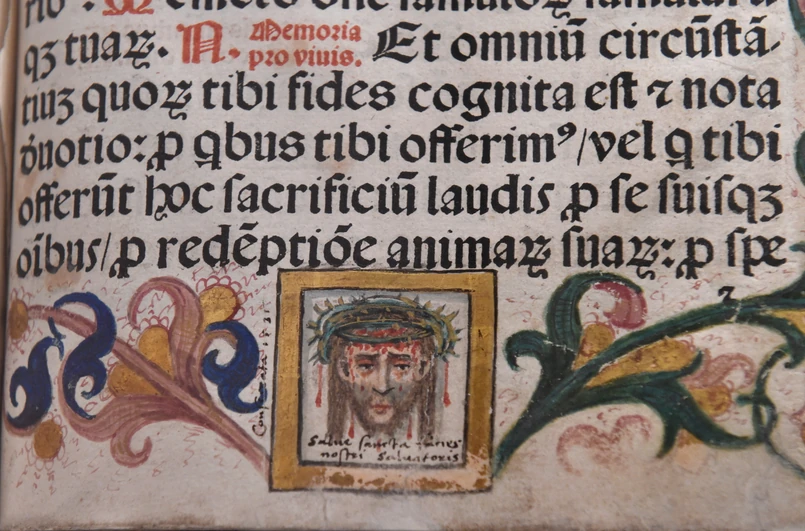 qꝫ tuaꝝ. N. Memoria
pro viuis. Et omniū circūſtā
tiuꝫ quoꝝ tibi fides cognita eſt ⁊ nota
deuotio: ꝓ qbus tibi offerimꝰ/vel q tibi
offerūt hoc ſacrificiū laudis ꝓ ſe ſuiſqꝫ
oībus/ꝓ redēptiōe animaꝝ ſuaꝝ: ꝓ ſpe
⁊
Salue ſancta facies
noſtri Saluatoris